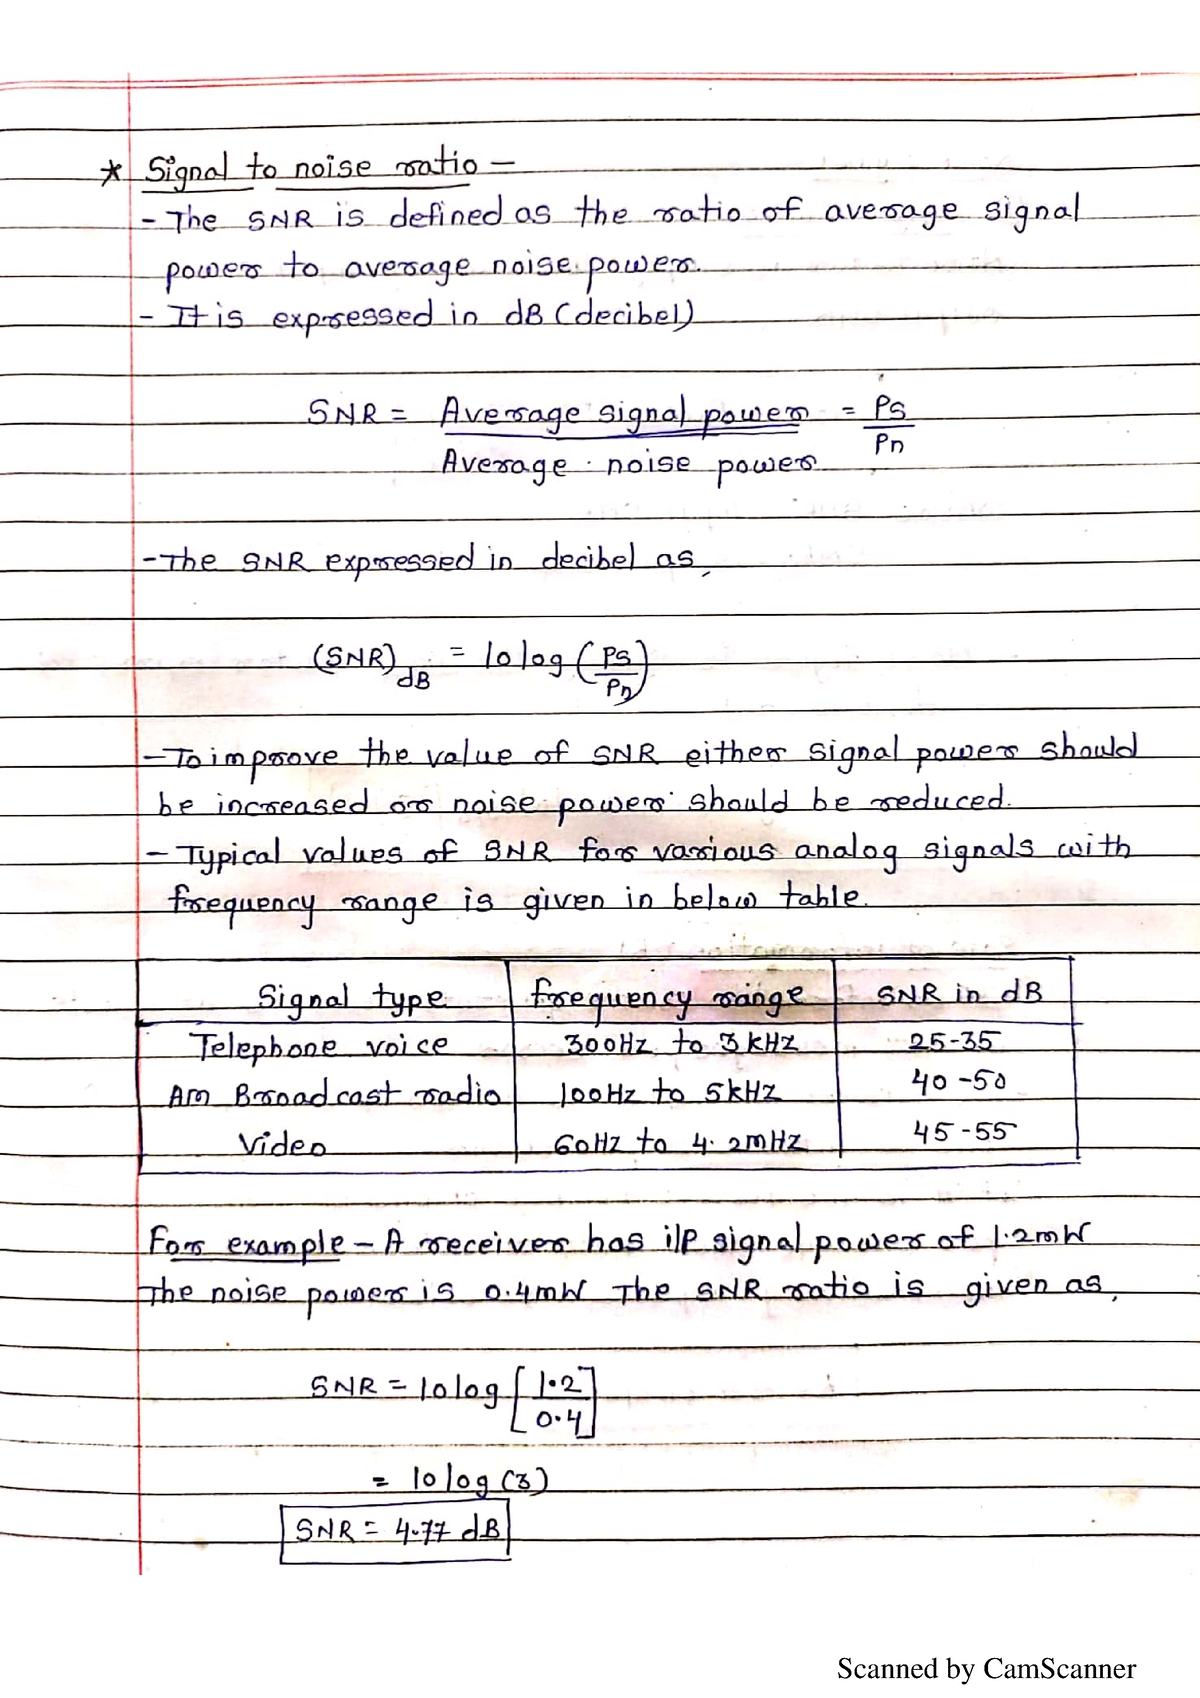 * Signal to noise ratio –
- The SNR is defined as the ratio of average signal
power to average noise power.
- It is expressed in dB (decibel)
SNR = Average signal power = Ps
Average noise power Pn
- The SNR expressed in decibel as,
(SNR)dB = 10 log (Ps/Pn)
- To improve the value of SNR either signal power should
be increased or noise power should be reduced.
- Typical values of SNR for various analog signals with
frequency range is given in below table.
Signal type frequency range SNR in dB
Telephone voice 300Hz to 3kHz 25-35
Am Broadcast radio 100Hz to 5kHz 40-50
Video 60Hz to 4.2mHz 45-55
For example – A receiver has i/p signal power of 1.2mW
The noise power is 0.4mW The SNR ratio is given as,
SNR = 10 log [1.2/0.4]
= 10 log (3)
SNR = 4.77 dB
Scanned by CamScanner